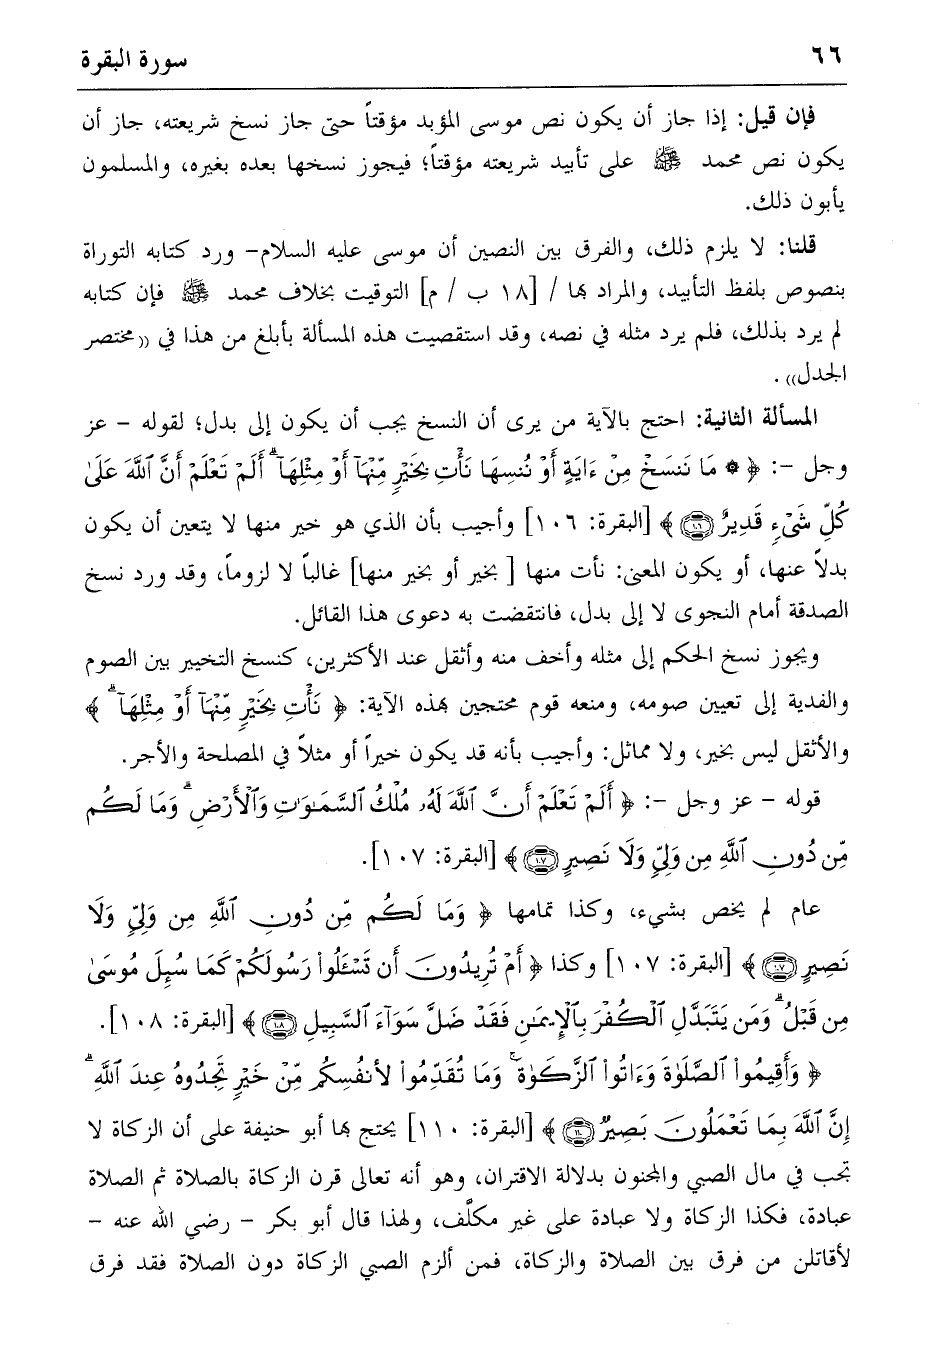 ٦٦ سورة البقرة
فإن قيل: إذا جاز أن يكون نص موسى المؤبد مؤقتاً حتى جاز نسخ شريعته، جاز أن
يكون نص محمد ﷺ على تأبيد شريعته مؤقتاً؛ فيجوز نسخها بعده بغيره، والمسلمون
يأبون ذلك.
قلنا: لا يلزم ذلك، والفرق بين النصين أن موسى عليه السلام- ورد كتابه التوراة
بنصوص بلفظ التأبيد، والمراد بها / [١٨ ب / م] التوقيت بخلاف محمد ﷺ فإن كتابه
لم يرد بذلك، فلم يرد مثله في نصه، وقد استقصيت هذه المسألة بأبلغ من هذا في ((مختصر
الجدل)).
المسألة الثانية: احتج بالآية من يرى أن النسخ يجب أن يكون إلى بدل؛ لقوله - عز
وجل -: ﴿ ۞ مَا نَنسَخْ مِنْ ءَايَةٍ أَوْ نُنسِهَا نَأْتِ بِخَيْرٍ مِّنْهَآ أَوْ مِثْلِهَآ ۗ أَلَمْ تَعْلَمْ أَنَّ ٱللَّهَ عَلَىٰ
كُلِّ شَىْءٍ قَدِيرٌ ١٠٦ ﴾ [البقرة: ١٠٦] وأجيب بأن الذي هو خير منها لا يتعين أن يكون
بدلاً عنها، أو يكون المعنى: نأت منها [بخير أو بخير منها] غالباً لا لزوماً، وقد ورد نسخ
الصدقة أمام النجوى لا إلى بدل، فانتقضت به دعوى هذا القائل.
ويجوز نسخ الحكم إلى مثله وأخف منه وأثقل عند الأكثرين، كنسخ التخيير بين الصوم
والفدية إلى تعيين صومه، ومنعه قوم محتجين بهذه الآية: ﴿ نَأْتِ بِخَيْرٍ مِّنْهَآ أَوْ مِثْلِهَآ ۗ ﴾
والأثقل ليس بخير، ولا مماثل: وأجيب بأنه قد يكون خيراً أو مثلاً في المصلحة والأجر.
قوله - عز وجل -: ﴿ أَلَمْ تَعْلَمْ أَنَّ ٱللَّهَ لَهُۥ مُلْكُ ٱلسَّمَٰوَٰتِ وَٱلْأَرْضِ ۗ وَمَا لَكُم
مِّن دُونِ ٱللَّهِ مِن وَلِىٍّ وَلَا نَصِيرٍ ١٠٧ ﴾ [البقرة: ١٠٧].
عام لم يخص بشيء، وكذا تمامها ﴿ وَمَا لَكُم مِّن دُونِ ٱللَّهِ مِن وَلِىٍّ وَلَا
نَصِيرٍ ١٠٧ ﴾ [البقرة: ١٠٧] وكذا ﴿ أَمْ تُرِيدُونَ أَن تَسْـَٔلُوا۟ رَسُولَكُمْ كَمَا سُئِلَ مُوسَىٰ
مِن قَبْلُ ۗ وَمَن يَتَبَدَّلِ ٱلْكُفْرَ بِٱلْإِيمَٰنِ فَقَدْ ضَلَّ سَوَآءَ ٱلسَّبِيلِ ١٠٨ ﴾ [البقرة: ١٠٨].
﴿ وَأَقِيمُوا۟ ٱلصَّلَوٰةَ وَءَاتُوا۟ ٱلزَّكَوٰةَ ۚ وَمَا تُقَدِّمُوا۟ لِأَنفُسِكُم مِّنْ خَيْرٍ تَجِدُوهُ عِندَ ٱللَّهِ ۗ
إِنَّ ٱللَّهَ بِمَا تَعْمَلُونَ بَصِيرٌ ١١٠ ﴾ [البقرة: ١١٠] يحتج بها أبو حنيفة على أن الزكاة لا
تجب في مال الصبي والمجنون بدلالة الاقتران، وهو أنه تعالى قرن الزكاة بالصلاة ثم الصلاة
عبادة، فكذا الزكاة ولا عبادة على غير مكلَّف، ولهذا قال أبو بكر - رضي الله عنه -
لأقاتلن من فرق بين الصلاة والزكاة، فمن ألزم الصبي الزكاة دون الصلاة فقد فرق